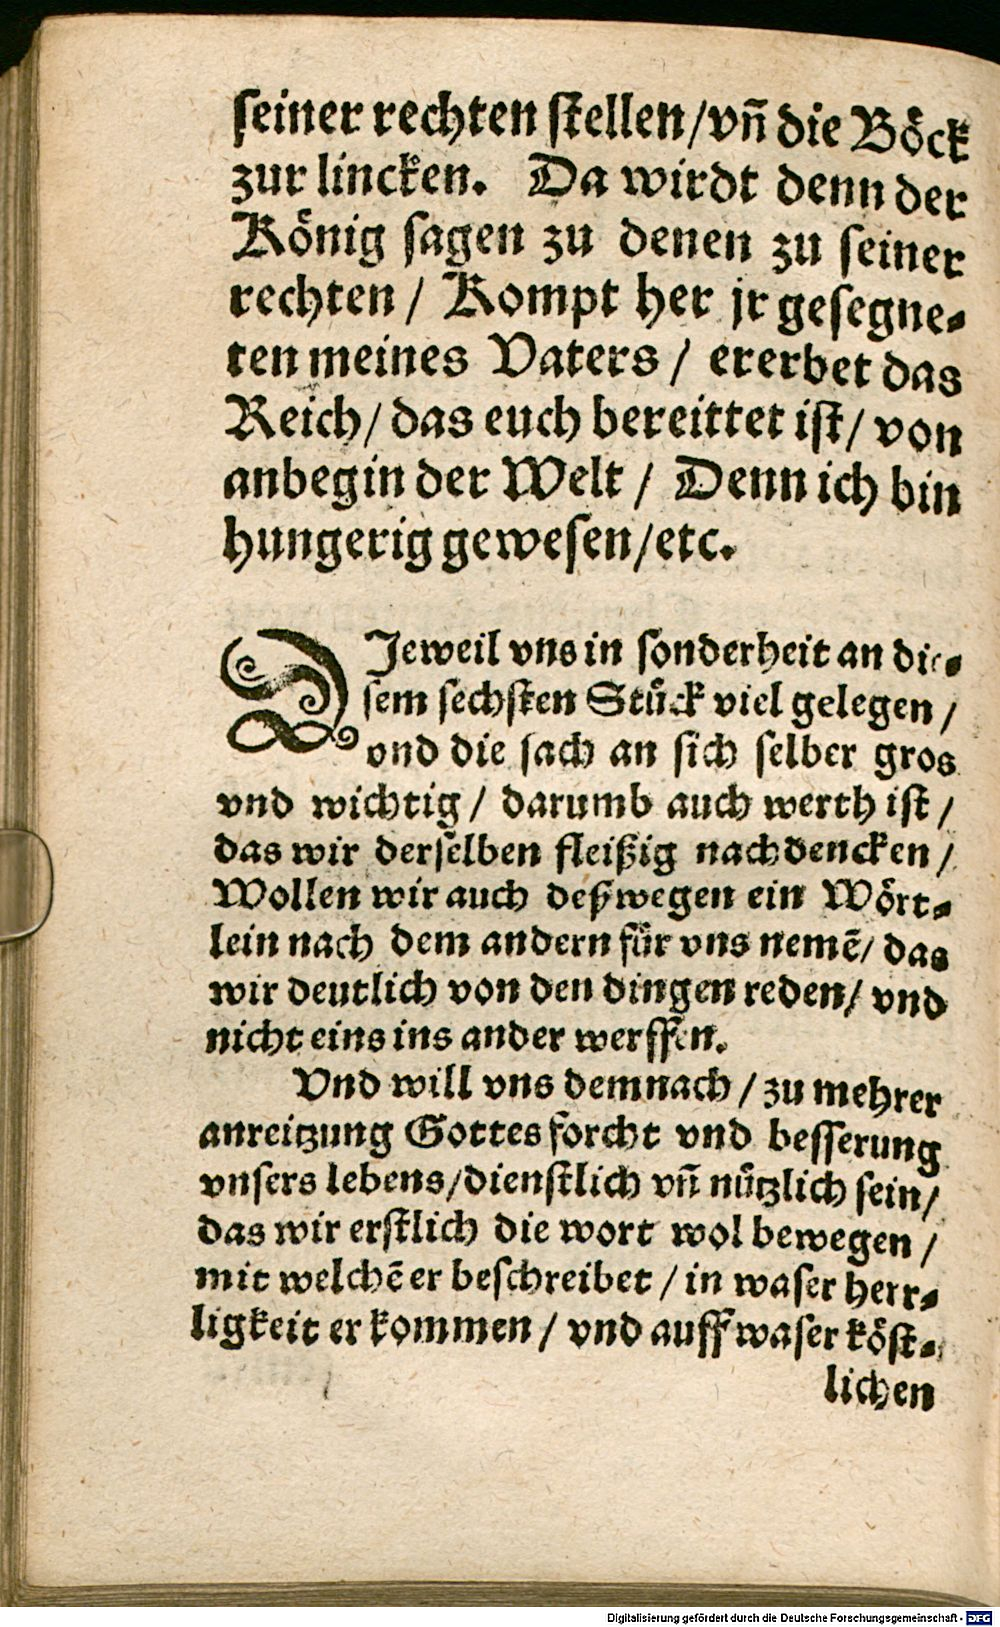 seiner rechten stellen/vn̄ die Böck
zur lincken. Da wirdt denn der
König sagen zu denen zu seiner
rechten / Kompt her jr gesegne-
ten meines Vaters / ererbet das
Reich/ das euch bereittet ist/ von
anbegin der Welt / Denn ich bin
hungerig gewesen/etc.
DJeweil vns in sonderheit an die-
sem sechsten Stück viel gelegen /
vnd die sach an sich selber gros
vnd wichtig / darumb auch werth ist /
das wir derselben fleißig nachdencken /
Wollen wir auch deßwegen ein Wört-
lein nach dem andern für vns nemē/ das
wir deutlich von den dingen reden/ vnd
nicht eins ins ander werffen.
Vnd will vns demnach / zu mehrer
anreitzung Gottesforcht vnd besserung
vnsers lebens/dienstlich vn̄ nützlich sein/
das wir erstlich die wort wol bewegen /
mit welchē er beschreibet / in waser herr-
ligkeit er kommen / vnd auff waser köst-
lichen
Digitalisierung gefördert durch die Deutsche Forschungsgemeinschaft - DFG